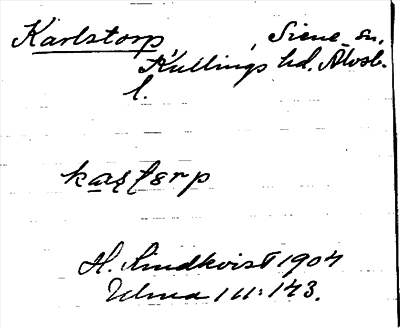 Karlstorp, Siene sn.
Kullings hd. Älvsb.
l.
kaʂtɵrp
H. Lindkvist 1904
Ulma 111:143.